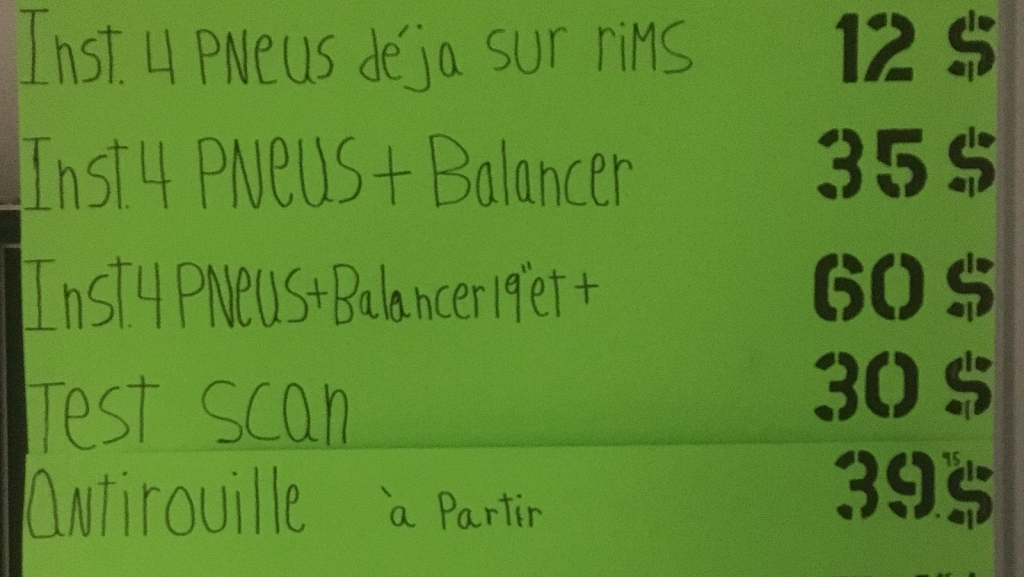 Inst. 4 PNeus déja sur riMS 12 $
Inst. 4 PNeUS + Balancer 35 $
Inst. 4 PNeUS + Balancer 19" et + 60 $
Test scan 30 $
antirouille à Partir 39.95 $